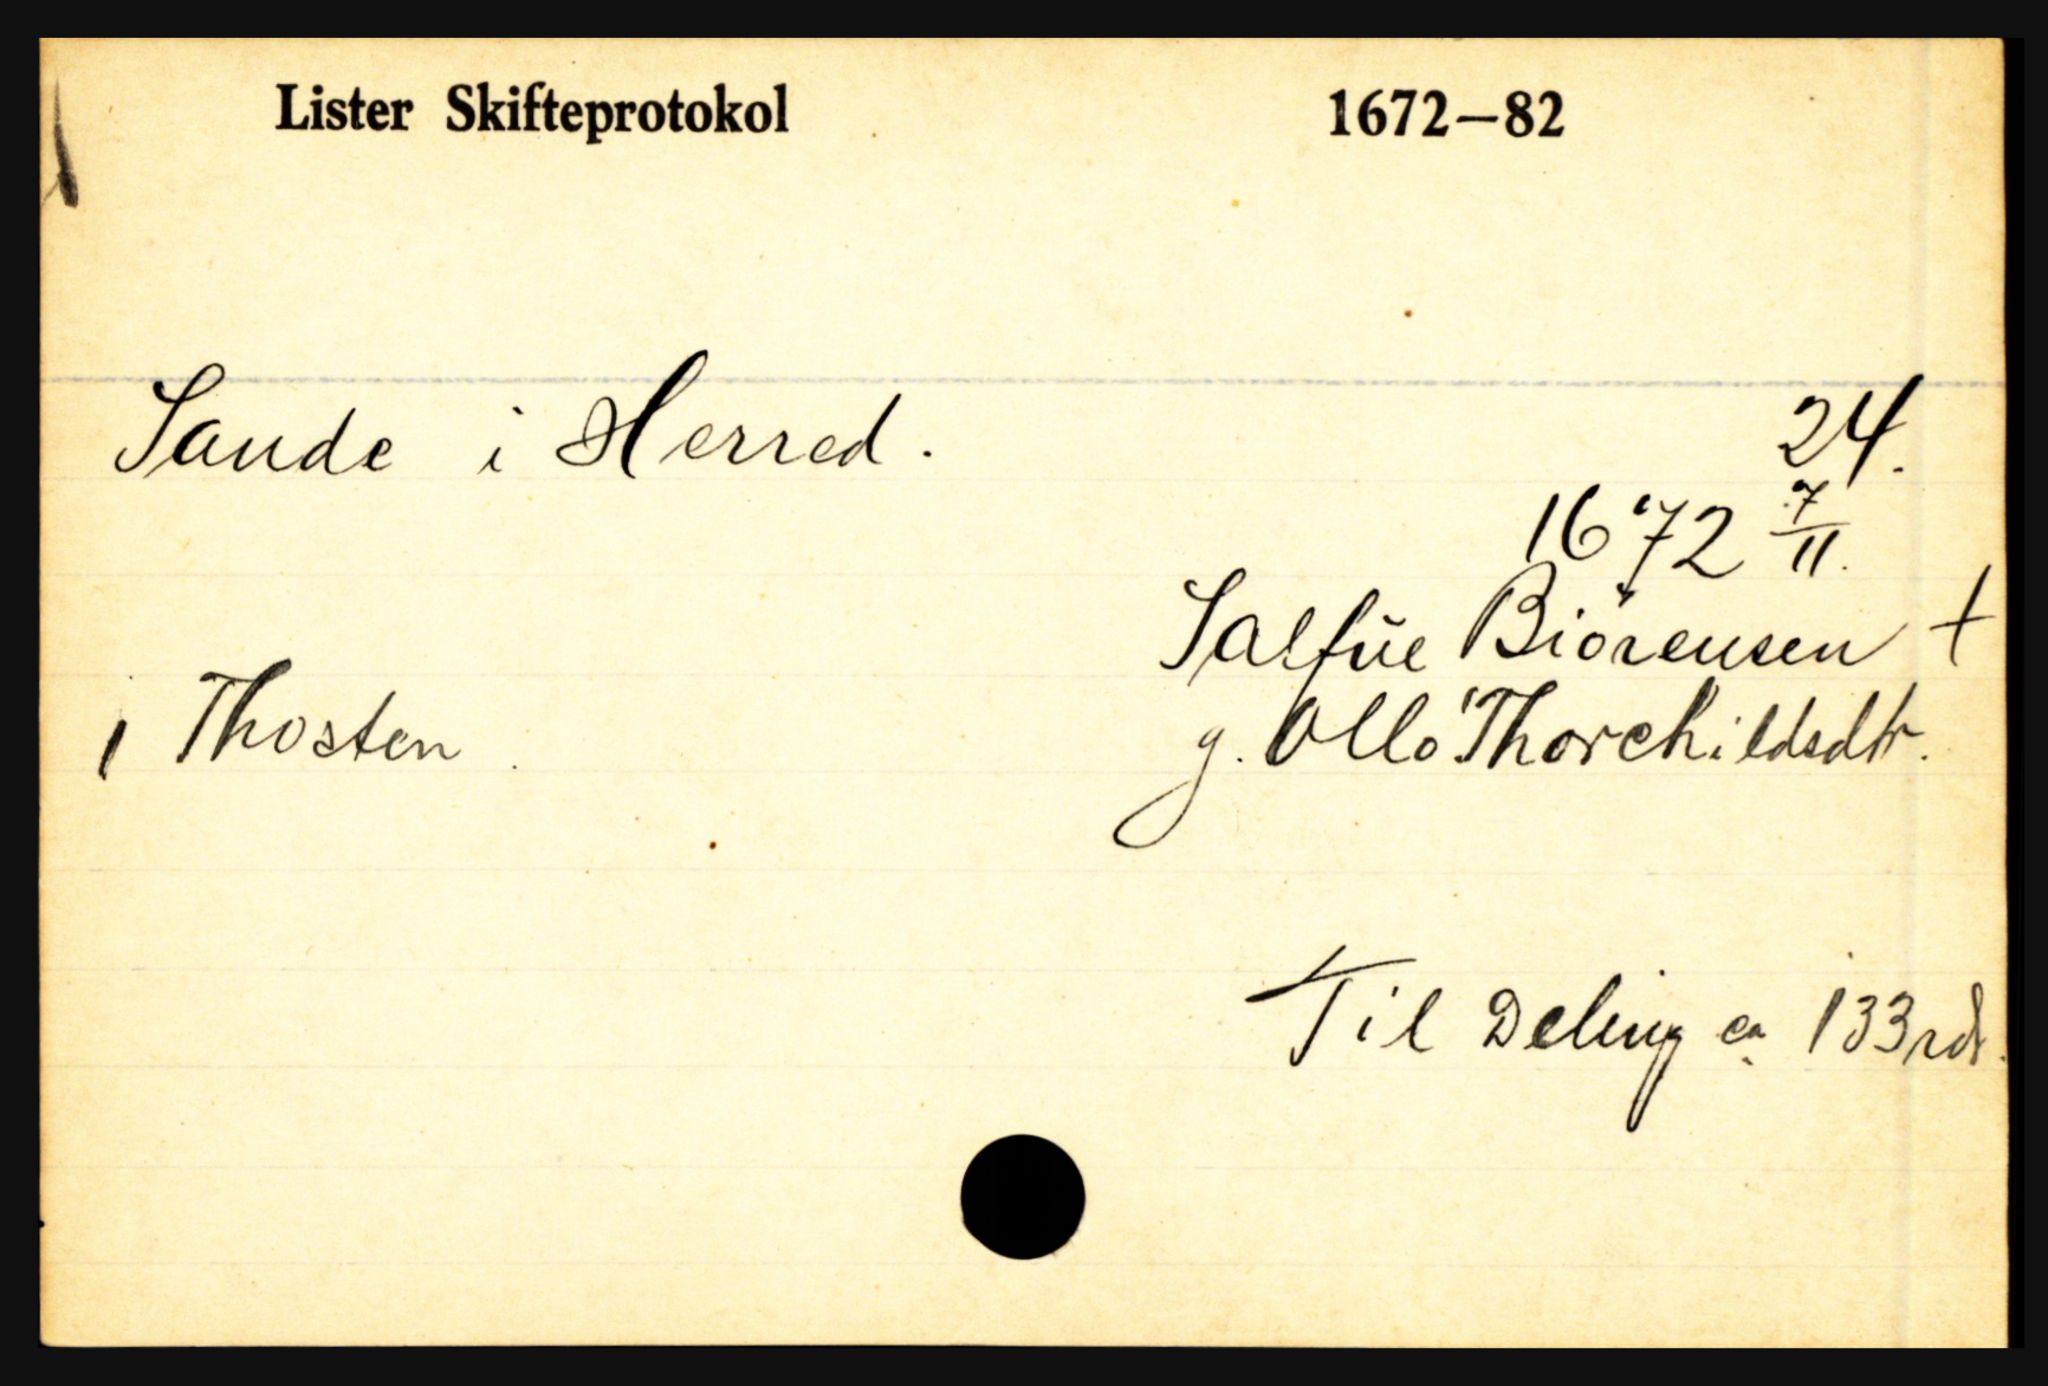 Lister Skifteprotokol 1672—82
Sande i Herred. 24.
1672 7/11.
Salfüe Biörensen +
1 Thosten. g. Ollo Thorchildsdtr.
Til Deling ca 133 rdr.